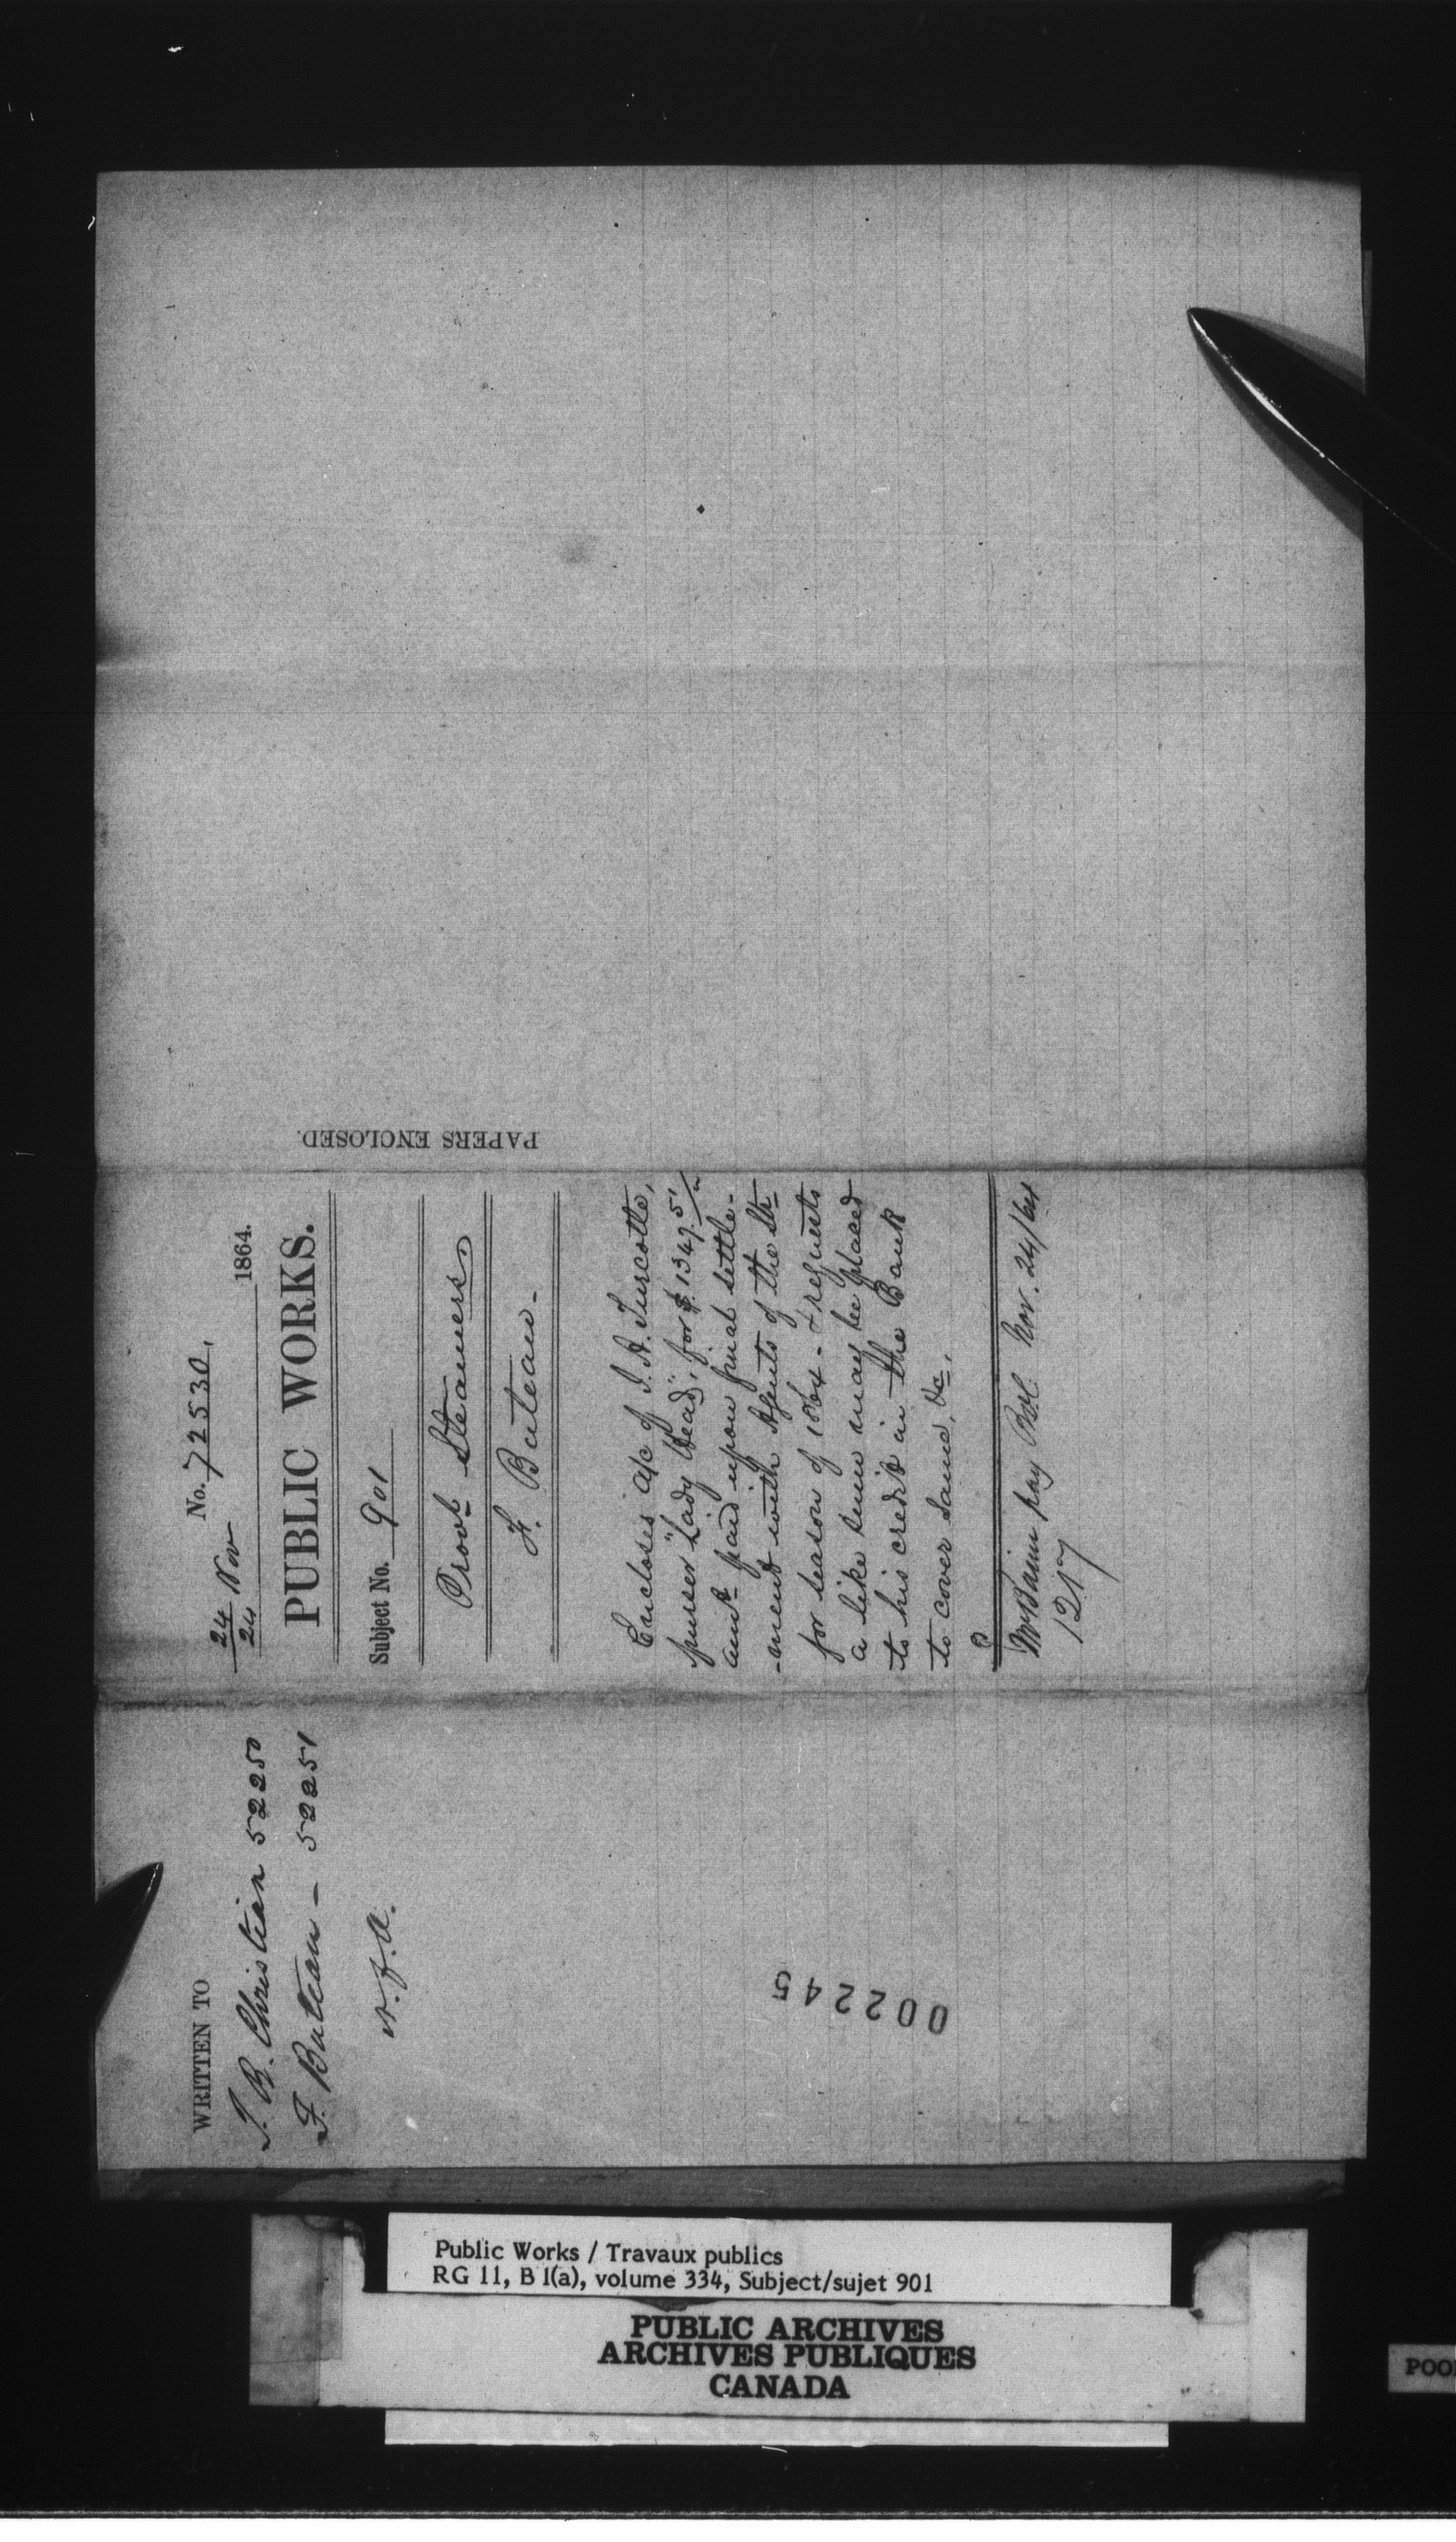 No. 72530,
24/24 Nov 1864.
PUBLIC WORKS.
Subject No. 901
Provl Steamers
F. Buteau.
Encloses a/c of J. A. Turcotte,
purser "Lady Head", for $1349.51
amt paid upon final settle-
-ment with Agents of the Str
for season of 1864 - & requests
a like sum may be placed
to his credit in the Bank
to cover same, &c.
pay Nov. 24/64
1217
PAPERS ENCLOSED.
WRITTEN TO
J. B. Christian 52250
F. Buteau - 52251
N.F.A.
002245
Public Works / Travaux publics
RG 11, B 1(a), volume 334, Subject/sujet 901
PUBLIC ARCHIVES
ARCHIVES PUBLIQUES
CANADA
POO